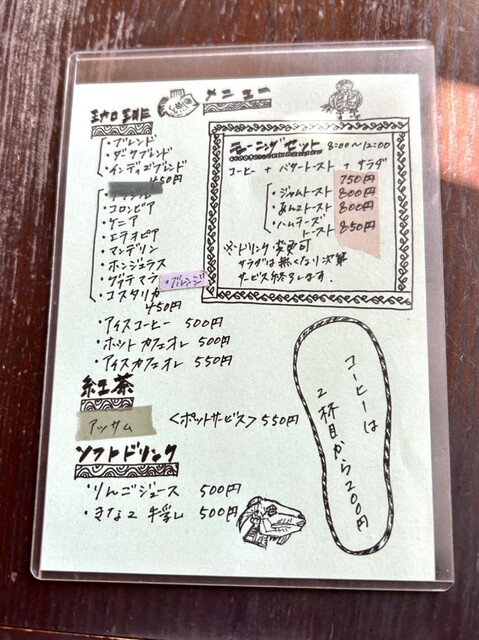 珈琲 メニュー
・ブレンド
・ダークブレンド
・インディゴブレンド
450円
・コロンビア
・ケニア
・エチオピア
・マンデリン
・ホンジュラス
・グァテマラ
・ブルンジ
・コスタリカ
450円
・アイスコーヒー 500円
・ホットカフェオレ 500円
・アイスカフェオレ 550円
紅茶
アッサム <ポットサービス> 550円
ソフトドリンク
・りんごジュース 500円
・きなこ牛乳 500円
モーニングセット 8:00~12:00
コーヒー + バタートースト + サラダ
750円
・ジャムトースト 800円
・あんこトースト 800円
・ハムチーズトースト 850円
※・ドリンク変更可
サラダは無くなり次第
サービス終了します.
コーヒーは
2杯目から200円